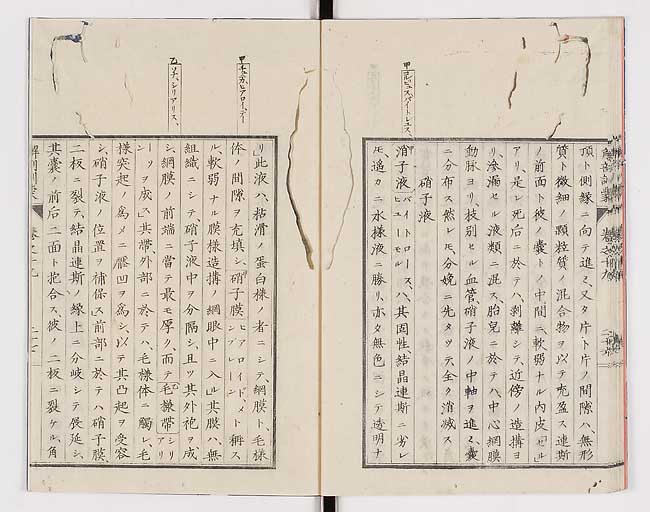 頂ト側縁ニ向テ進ミ、又タ片ト片ノ間隙ハ、無形
質ト微細ノ顆粒質ノ混合物ヲ以テ充盈ス連斯
ノ前面ト彼ノ囊トノ中間ニ、軟弱ナル内皮
アリ、是レ死后ニ於テハ、剥離シテ、近傍ノ造構ヨ
リ滲漏セル液類ニ混ス胎児ニ於テハ、中心網膜
動脉ヨリ、枝別セル血管、硝子液ノ中軸ヲ進ミ囊
ニ分布ス然レ𪜈、分娩ニ先タツテ全ク消滅ス
硝子液
硝子液 バイトロース、ヒユーモル ハ、其固性、結晶連斯ニ劣レ
𪜈、遥カニ水様液ニ勝リ、亦タ無色ニシテ透明ナ
リ此液ハ、粘滑ノ蛋白様ノ者ニシテ、網膜ト、毛様
体ノ間隙ヲ充填シ、硝子膜 ヒアロイドメンブレーン ト称ス
ル、軟弱ナル膜様造構ノ網眼中ニ入ル其膜ハ、無
組織ニシテ、硝子液中ヲ分隔シ、且ツ其外袍ヲ成
シ、網膜ノ前端ニ當テ最モ厚ク、而テ毛様帯 シリアリ
ーツヲ成ス其帯外部ニ於テハ、毛様体ニ觸レ、毛
様突起ノ為メニ凹ヲ為シ、以テ其凸起ヲ受容
シ、硝子液ノ位置ヲ補保ス前部ニ於テハ硝子膜、
二板ニ裂テ、結晶連斯ノ縁上ニ分岐シテ長延シ、
其囊ノ前后二面ト抱合ス、彼ノ二板ニ裂ケル、角
解剖訓蒙
巻之十九